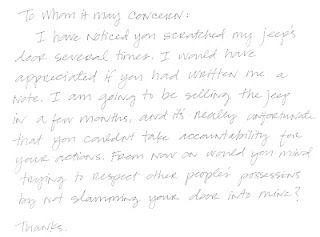 To whom it may concern:
I have noticed you scratched my jeep's
door several times. I would have
appreciated if you had written me a
note. I am going to be selling the jeep
in a few months, and it's really unfortunate
that you couldn't take accountability for
your actions. From now on would you mind
trying to respect other people's possessions
by not slamming your door into mine?
Thanks.